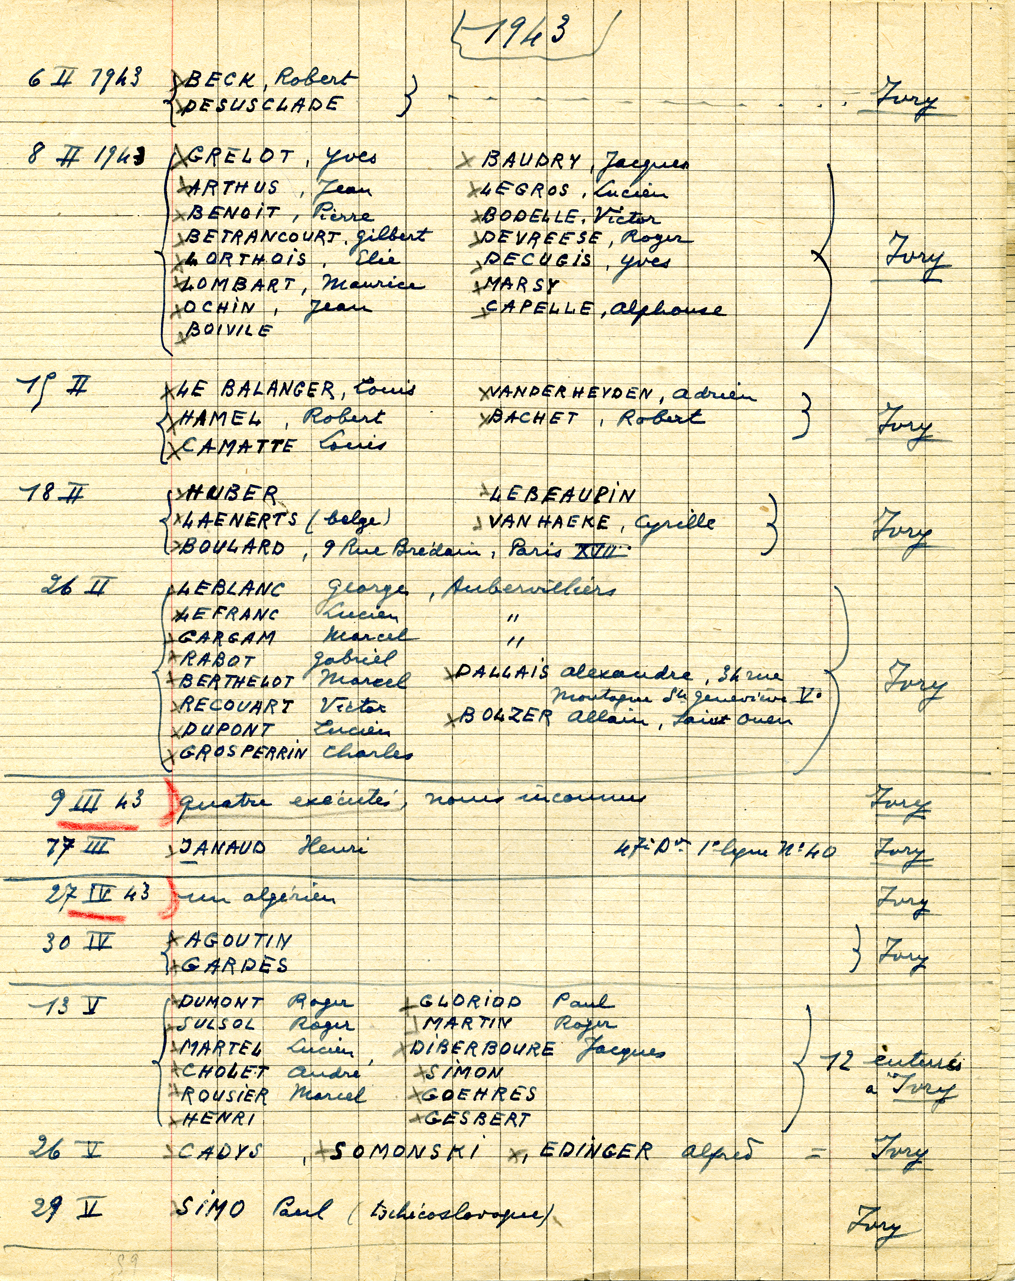 1943
6 II 1943 BECK, Robert
DESUSCLADE Ivry
8 II 1943 GRELOT, Yves BAUDRY, Jacques
ARTHUS, Jean LEGROS, Lucien
BENOIT, Pierre BODELLE, Victor
BETRANCOURT, Gilbert DEVREESE, Roger
LORTHOIS, Elie DECUGIS, Yves Ivry
LOMBART, Maurice MARSY
OCHIN, Jean CAPELLE, Alphonse
BOIVILE
15 II LE BALANGER, Louis VANDERHEYDEN, Adrien
HAMEL, Robert BACHET, Robert Ivry
CAMATTE Louis
18 II HUBER LEBEAUPIN
LAENERTS (belge) VAN HAEKE, Cyrille Ivry
BOULARD, 9 Rue Brédain, Paris XVII
26 II LEBLANC George, Aubervilliers
LEFRANC Lucien "
GARGAM Marcel "
RABOT Gabriel
BERTHELOT Marcel DALLAIS Alexandre, 34 rue Ivry
RECOUART Victor Montagne Ste Geneviève Ve
DUPONT Lucien BOLZER Allain, Saint Ouen
GROSPERRIN Charles
9 III 43 quatre exécutés, noms inconnus Ivry
17 III JANAUD Henri 47e Don 1e ligne N° 40 Ivry
27 IV 43 un algérien Ivry
30 IV AGOUTIN
GARDES Ivry
13 V DUMONT Roger GLORIOD Paul
SULSOL Roger MARTIN Roger
MARTEL Lucien, DIBERBOURE Jacques 12 enterrés
CHOLET André SIMON à Ivry
ROUSIER Marcel GOEHRES
HENRI GESBERT
26 V CADYS, SOMONSKI, EDINGER Alfred = Ivry
29 V SIMO Paul (tschécoslovaque) Ivry